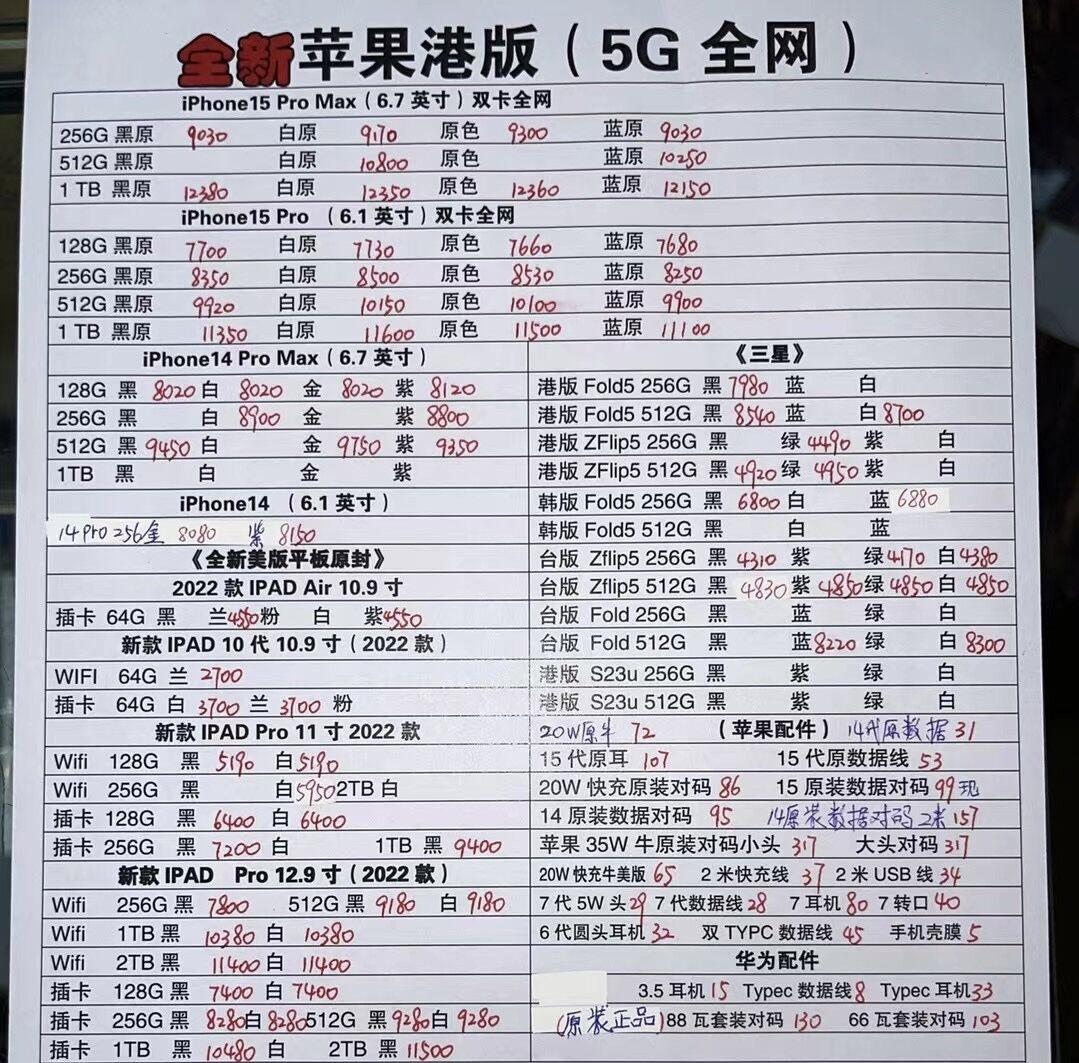 全新苹果港版（5G 全网）
iPhone15 Pro Max（6.7 英寸）双卡全网
256G 黑原 9030 白原 9170 原色 9300 蓝原 9030
512G 黑原 白原 10800 原色 蓝原 10250
1 TB 黑原 12380 白原 12350 原色 12360 蓝原 12150
iPhone15 Pro （6.1 英寸）双卡全网
128G 黑原 7700 白原 7730 原色 7660 蓝原 7680
256G 黑原 8350 白原 8500 原色 8530 蓝原 8250
512G 黑原 9920 白原 10150 原色 10100 蓝原 9900
1 TB 黑原 11350 白原 11600 原色 11500 蓝原 11100
iPhone14 Pro Max（6.7 英寸）
128G 黑 8020 白 8020 金 8020 紫 8120
256G 黑 白 8900 金 紫 8800
512G 黑 9450 白 金 9750 紫 9350
1TB 黑 白 金 紫
iPhone14 （6.1 英寸）
14 Pro 256金 8080 紫 8150
《全新美版平板原封》
2022 款 IPAD Air 10.9 寸
插卡 64G 黑 兰4550粉 白 紫4550
新款 IPAD 10 代 10.9 寸（2022 款）
WIFI 64G 兰 2700
插卡 64G 白 3700 兰 3700 粉
新款 IPAD Pro 11 寸 2022 款
Wifi 128G 黑 5190 白5190
Wifi 256G 黑 白5950 2TB 白
插卡 128G 黑 6400 白 6400
插卡 256G 黑 7200 白 1TB 黑 9400
新款 IPAD Pro 12.9 寸（2022 款）
Wifi 256G 黑 7800 512G 黑 9180 白 9180
Wifi 1TB 黑 10380 白 10380
Wifi 2TB 黑 11400 白 11400
插卡 128G 黑 7400 白 7400
插卡 256G 黑 8280白 8280 512G 黑 9280白 9280
插卡 1TB 黑 10480 白 2TB 黑 11500
《三星》
港版 Fold5 256G 黑 7980 蓝 白
港版 Fold5 512G 黑 8540 蓝 白8700
港版 ZFlip5 256G 黑 绿 4490 紫 白
港版 ZFlip5 512G 黑 4920 绿 4950 紫 白
韩版 Fold5 256G 黑 6800 白 蓝 6880
韩版 Fold5 512G 黑 白 蓝
台版 Zflip5 256G 黑 4310 紫 绿4170 白4380
台版 Zflip5 512G 黑 4830 紫 4850绿 4850 白 4850
台版 Fold 256G 黑 蓝 绿 白
台版 Fold 512G 黑 蓝8220 绿 白 8300
港版 S23u 256G 黑 紫 绿 白
港版 S23u 512G 黑 紫 绿 白
20W原牛 72 （苹果配件） 14代原数据 31
15 代原耳 107 15 代原数据线 53
20W 快充原装对码 86 15 原装数据对码 99 现
14 原装数据对码 95 14原装数据对码2米 157
苹果 35W 牛原装对码小头 317 大头对码 317
20W 快充牛美版 65 2 米快充线 37 2 米 USB 线 34
7 代 5W 头29 7 代数据线 28 7 耳机 80 7 转口 40
6 代圆头耳机 32 双 TYPC 数据线 45 手机壳膜 5
华为配件
3.5 耳机 15 Typec 数据线8 Typec 耳机33
(原装正品) 88 瓦套装对码 130 66 瓦套装对码 103